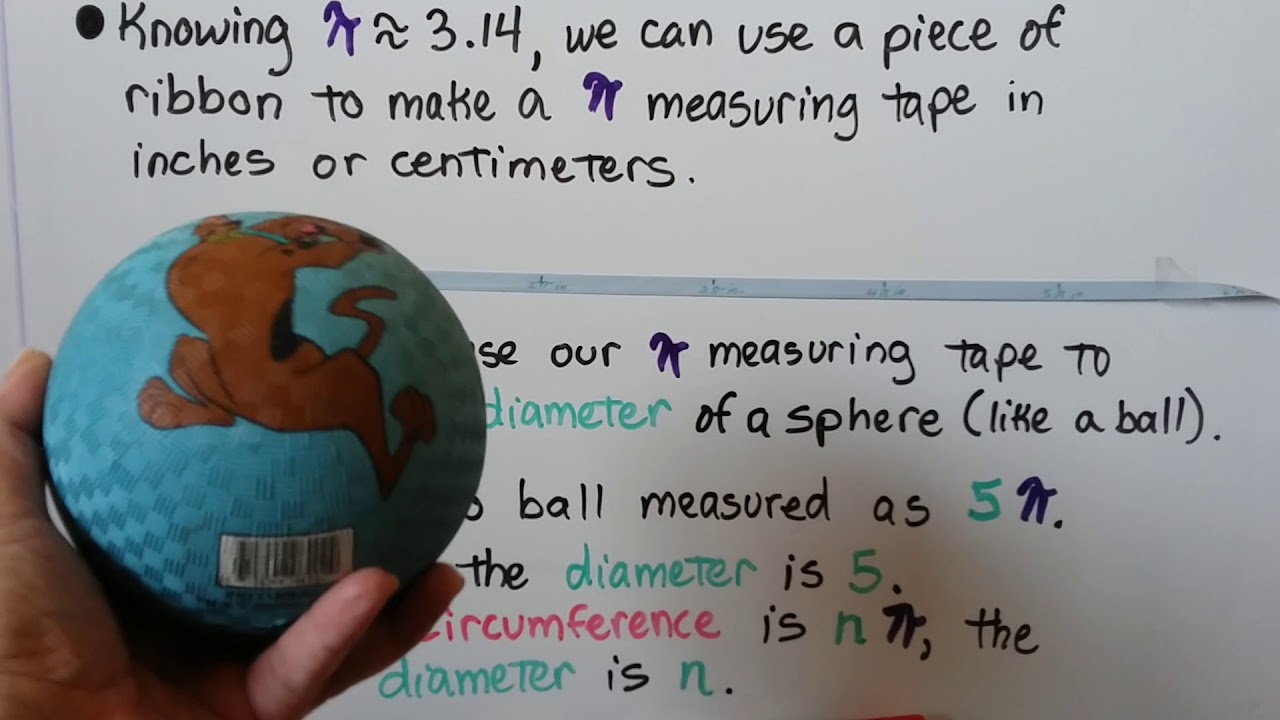 • Knowing π ≈ 3.14, we can use a piece of
ribbon to make a π measuring tape in
inches or centimeters.
2π in 3π in. 4π in 5π in
se our π measuring tape to
diameter of a sphere (like a ball).
ball measured as 5π.
the diameter is 5.
circumference is nπ, the
diameter is n.